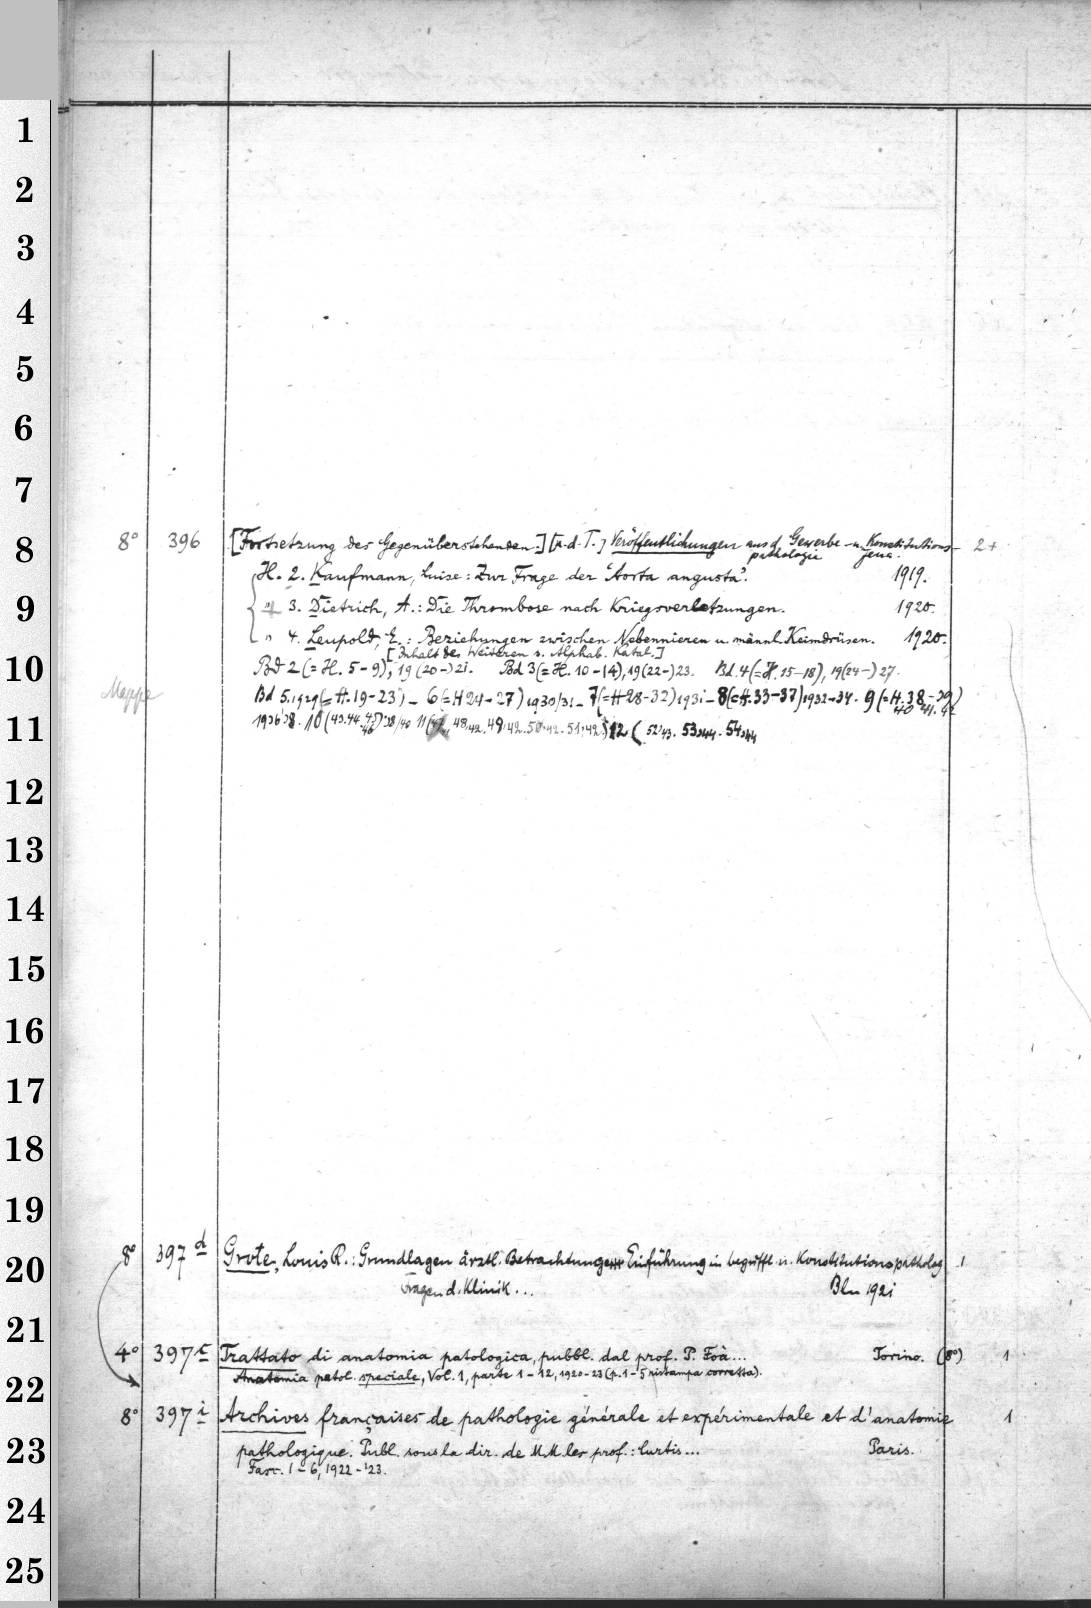 1
2
3
4
5
6
7
8
8° 396 [Fortsetzung des Gegenüberstehenden.] [u. d. T.] Veröffentlichungen aus d. Gewerbe- u. Konstitutions- 2+
pathologie Jena.
H. 2. Kaufmann, Luise: Zur Frage der "Aorta angusta". 1919.
9
" 3. Dietrich, A.: Die Thrombose nach Kriegsverletzungen. 1920.
" 4. Leupold, E.: Beziehungen zwischen Nebennieren u. männl. Keimdrüsen. 1920.
[Inhalt des Weiteren s. Alphab. Katal.]
10
Bd 2 (= H. 5-9), 19(20-)21. Bd 3 (= H. 10-14), 19(22-)23. Bd. 4 (= H. 15-18), 19(24-)27.
Mappe
Bd 5. 1929 (= H. 19-23) - 6 (= H 24-27) 1930/31 - 7 (= H 28-32) 1931 - 8 (= H. 33-37) 1932-34. 9 (= H. 38-39)
40 41. 42
11
1936/38. 10 (43.44.45) 38/40 11 (47, 48,42. 49,42. 50,42. 51,42) 12 (52,43. 53,44. 54,44
46
12
13
14
15
16
17
18
19
20
8° 397 d Grote, Louis R.: Grundlagen ärztl. Betrachtung Einführung in begriffl. u. Konstitutionspatholog 1
Fragen d. Klinik... Bln 1921
21
4° 397 e Trattato di anatomia patologica, pubbl. dal prof. P. Foà... Torino. (8°) 1
Anatomia patol. speciale, Vol. 1, parte 1-12, 1920-23 (p. 1-5 ristampa corretta).
22
8° 397 i Archives françaises de pathologie générale et expérimentale et d'anatomie 1
23
pathologique. Publ. sous la dir. de MM. les prof.: Curtis... Paris.
Fasc. 1-6, 1922-'23.
24
25